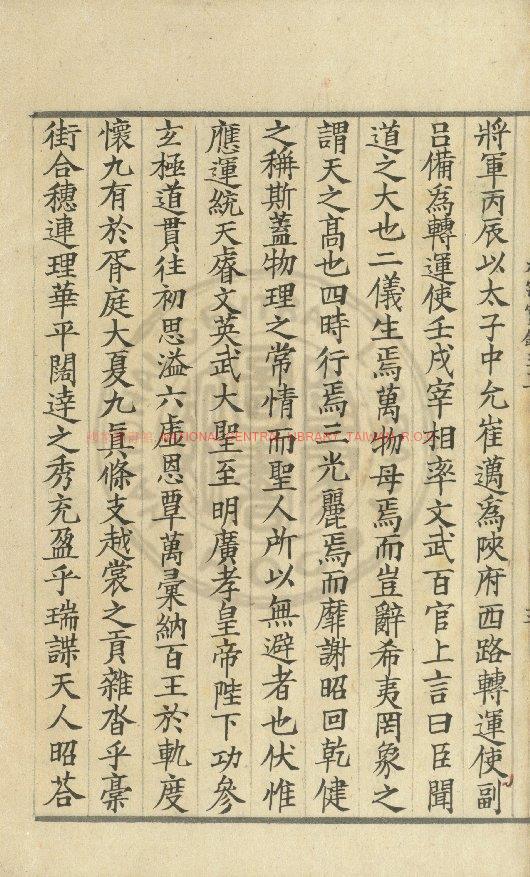 將軍丙辰以太子中允崔邁爲陜府西路轉運使副
呂備爲轉運使壬戌宰相率文武百官上言曰臣聞
道之大也二儀生焉萬物母焉而豈辭希夷罔象之
謂天之髙也四時行焉三光麗焉而靡謝昭回乾健
之稱斯蓋物理之常情而聖人所以無避者也伏惟
應運統天睿文英武大聖至明廣孝皇帝陛下功參
玄極道貫往初思溢六虛恩覃萬彙納百王於軌度
懷九有於胥庭大夏九眞條支越裳之貢雜沓乎藁
街合穗連理華平闊逹之秀充盈乎瑞諜天人昭荅
NATIONAL CENTRAL LIBRARY, TAIWAN, R.O.C